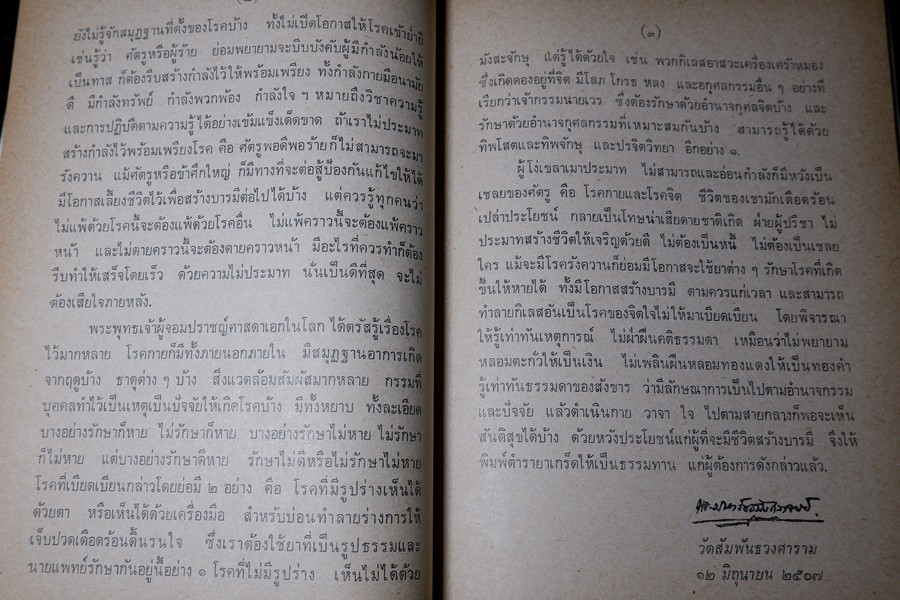 (๒)
ยังไม่รู้จักสมุฏฐานที่ตั้งของโรคบ้าง ทั้งไม่เปิดโอกาสให้โรคเข้าย่ำยี
เช่นรู้ว่า ศัตรูหรือผู้ร้าย ย่อมพยายามจะบีบบังคับผู้มีกำลังน้อยให้
เป็นทาส ก็ต้องรีบสร้างกำลังไว้ให้พร้อมเพรียง ทั้งกำลังกายมีอนามัย
ดี มีกำลังทรัพย์ กำลังพวกพ้อง กำลังใจ ฯ หมายถึงวิชาความรู้
และการปฏิบัติตามความรู้ได้อย่างเข้มแข็งเด็ดขาด ถ้าเราไม่ประมาท
สร้างกำลังไว้พร้อมเพรียงโรค คือ ศัตรูพอดีพอร้ายก็ไม่สามารถจะมา
รังควาน แม้ศัตรูหรือข้าศึกใหญ่ ก็มีทางที่จะต่อสู้ป้องกันแก้ไขให้ได้
มีโอกาสเลี้ยงชีวิตไว้เพื่อสร้างบารมีต่อไปได้บ้าง แต่ควรรู้ทุกคนว่า
ไม่แพ้ด้วยโรคนี้จะต้องแพ้ด้วยโรคอื่น ไม่แพ้คราวนี้จะต้องแพ้คราว
หน้า และไม่ตายคราวนี้จะต้องตายคราวหน้า มีอะไรที่ควรทำก็ต้อง
รีบทำให้เสร็จโดยเร็ว ด้วยความไม่ประมาท นั่นเป็นดีที่สุด จะไม่
ต้องเสียใจภายหลัง.
พระพุทธเจ้าผู้จอมปราชญ์ศาสดาเอกในโลก ได้ตรัสรู้เรื่องโรค
ไว้มากหลาย โรคกายก็มีทั้งภายนอกภายใน มีสมุฏฐานอาการเกิด
จากฤดูบ้าง ธาตุต่าง ๆ บ้าง สิ่งแวดล้อมสัมผัสมากหลาย กรรมที่
บุคคลทำไว้เป็นเหตุเป็นปัจจัยให้เกิดโรคบ้าง มีทั้งหยาบ ทั้งละเอียด
บางอย่างรักษาก็หาย ไม่รักษาก็หาย บางอย่างรักษาไม่หาย ไม่รักษา
ก็ไม่หาย แต่บางอย่างรักษาดีหาย รักษาไม่ดีหรือไม่รักษาไม่หาย
โรคที่เบียดเบียนกล่าวโดยย่อมี ๒ อย่าง คือ โรคที่มีรูปร่างเห็นได้
ด้วยตา หรือเห็นได้ด้วยเครื่องมือ สำหรับบ่อนทำลายร่างกายให้
เจ็บปวดเดือดร้อนดิ้นรนใจ ซึ่งเราต้องใช้ยาที่เป็นรูปธรรมและ
นายแพทย์รักษากันอยู่นี้อย่าง ๑ โรคที่ไม่มีรูปร่าง เห็นไม่ได้ด้วย
(๓)
มังสะจักษุ แต่รู้ได้ด้วยใจ เช่น พวกกิเลสอาสวะเครื่องเศร้าหมอง
ซึ่งเกิดดองอยู่ที่จิต มีโลภ โกรธ หลง และอกุศลกรรมอื่น ๆ อย่างที่
เรียกว่าเจ้ากรรมนายเวร ซึ่งต้องรักษาด้วยอำนาจกุศลจิตบ้าง และ
รักษาด้วยอำนาจกุศลกรรมที่เหมาะสมกันบ้าง สามารถรู้ได้ด้วย
ทิพโสตและทิพจักษุ และปรจิตวิทยา อีกอย่าง ๑.
ผู้โง่เขลาเมาประมาท ไม่สามารถและอ่อนกำลังก็มีหวังเป็น
เชลยของศัตรู คือ โรคกายและโรคจิต ชีวิตของเขามักเดือดร้อน
เปล่าประโยชน์ กลายเป็นโทษน่าเสียดายชาติเกิด ฝ่ายผู้ปรีชา ไม่
ประมาทสร้างชีวิตให้เจริญด้วยดี ไม่ต้องเป็นหนี้ ไม่ต้องเป็นเชลย
ใคร แม้จะมีโรครังควานก็ย่อมมีโอกาสจะใช้ยาต่าง ๆ รักษาโรคที่เกิด
ขึ้นให้หายได้ ทั้งมีโอกาสสร้างบารมี ตามควรแก่เวลา และสามารถ
ทำลายกิเลสอันเป็นโรคของจิตใจไม่ให้มาเบียดเบียน โดยพิจารณา
ให้รู้เท่าทันเหตุการณ์ ไม่ฝ่าฝืนคติธรรมดา เหมือนว่าไม่พยายาม
หลอมตะกั่วให้เป็นเงิน ไม่เพลินฝืนหลอมทองแดงให้เป็นทองคำ
รู้เท่าทันธรรมดาของสังขาร ว่ามีลักษณาการเป็นไปตามอำนาจกรรม
และปัจจัย แล้วดำเนินกาย วาจา ใจ ไปตามสายกลางก็พอจะเห็น
สันติสุขได้บ้าง ด้วยหวังประโยชน์แก่ผู้ที่จะมีชีวิตสร้างบารมี จึงให้
พิมพ์ตำรายาเกร็ดให้เป็นธรรมทาน แก่ผู้ต้องการดังกล่าวแล้ว.
วัดสัมพันธวงศาราม
๑๒ มิถุนายน ๒๕๐๗